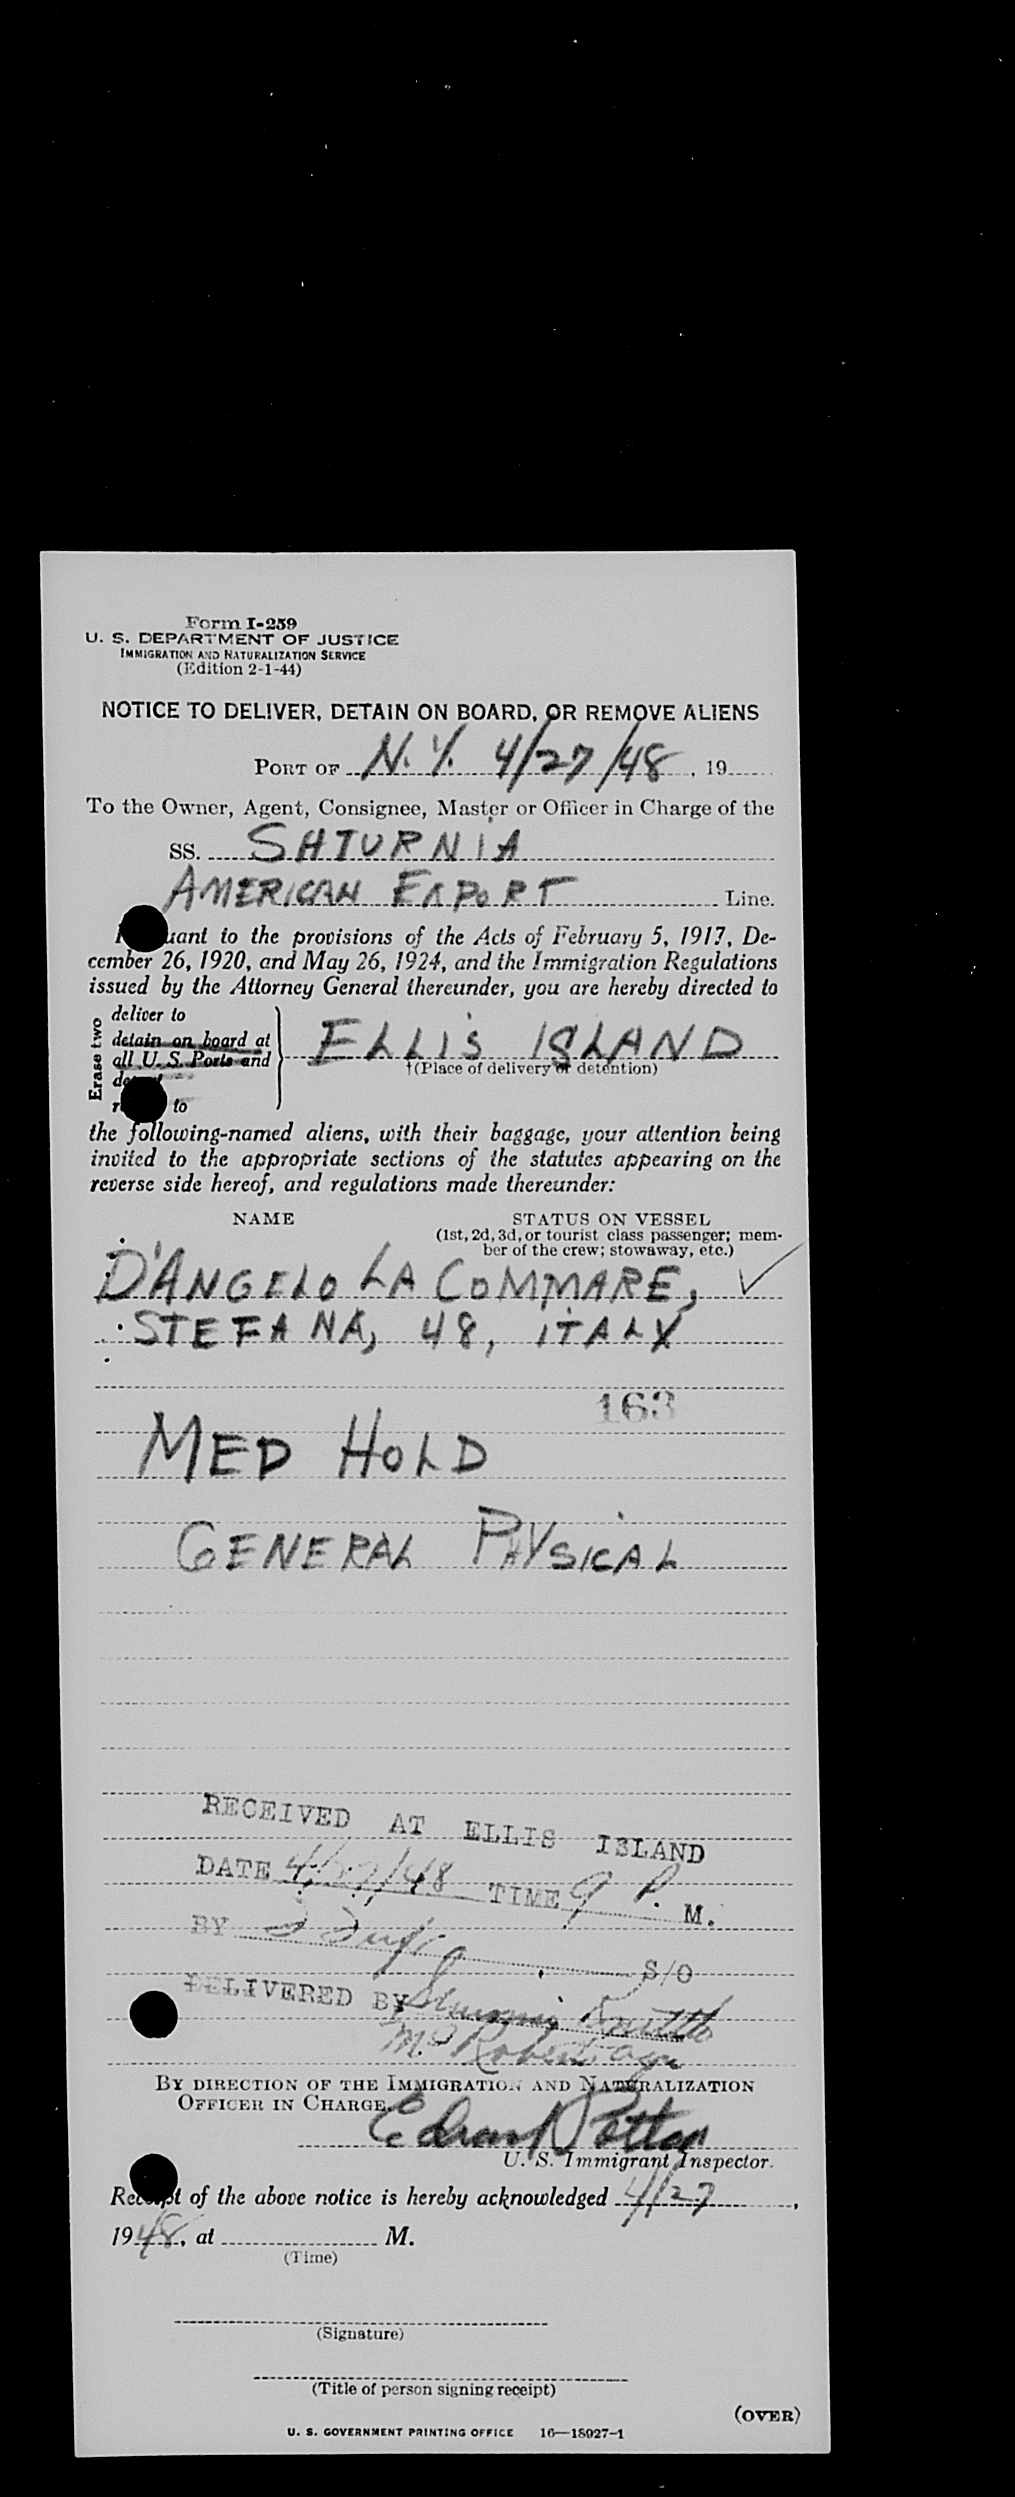 Form I-259
U. S. DEPARTMENT OF JUSTICE
IMMIGRATION AND NATURALIZATION SERVICE
(Edition 2-1-44)
NOTICE TO DELIVER, DETAIN ON BOARD, OR REMOVE ALIENS
PORT OF N.Y. 4/27/48, 19
To the Owner, Agent, Consignee, Master or Officer in Charge of the
SS. SATURNIA
AMERICAN EXPORT Line.
uant to the provisions of the Acts of February 5, 1917, De-
cember 26, 1920, and May 26, 1924, and the Immigration Regulations
issued by the Attorney General thereunder, you are hereby directed to
Erase two
deliver to
detain on board at
all U. S. Ports and
to
ELLIS ISLAND
†(Place of delivery or detention)
the following-named aliens, with their baggage, your attention being
invited to the appropriate sections of the statutes appearing on the
reverse side hereof, and regulations made thereunder:
NAME
STATUS ON VESSEL
(1st, 2d, 3d, or tourist class passenger; mem-
ber of the crew; stowaway, etc.)
D'ANGELO LA COMMARE,
STEFANA, 48, ITALY
163
MED HOLD
GENERAL PHYSICAL
RECEIVED AT ELLIS ISLAND
DATE 4/27/48 TIME 9 P. M.
BY S/O
DELIVERED BY
BY DIRECTION OF THE IMMIGRATION AND NATURALIZATION
OFFICER IN CHARGE.
U. S. Immigrant Inspector.
Receipt of the above notice is hereby acknowledged 4/27,
1948, at M.
(Time)
(Signature)
(Title of person signing receipt)
(OVER)
U. S. GOVERNMENT PRINTING OFFICE 16—18927-1